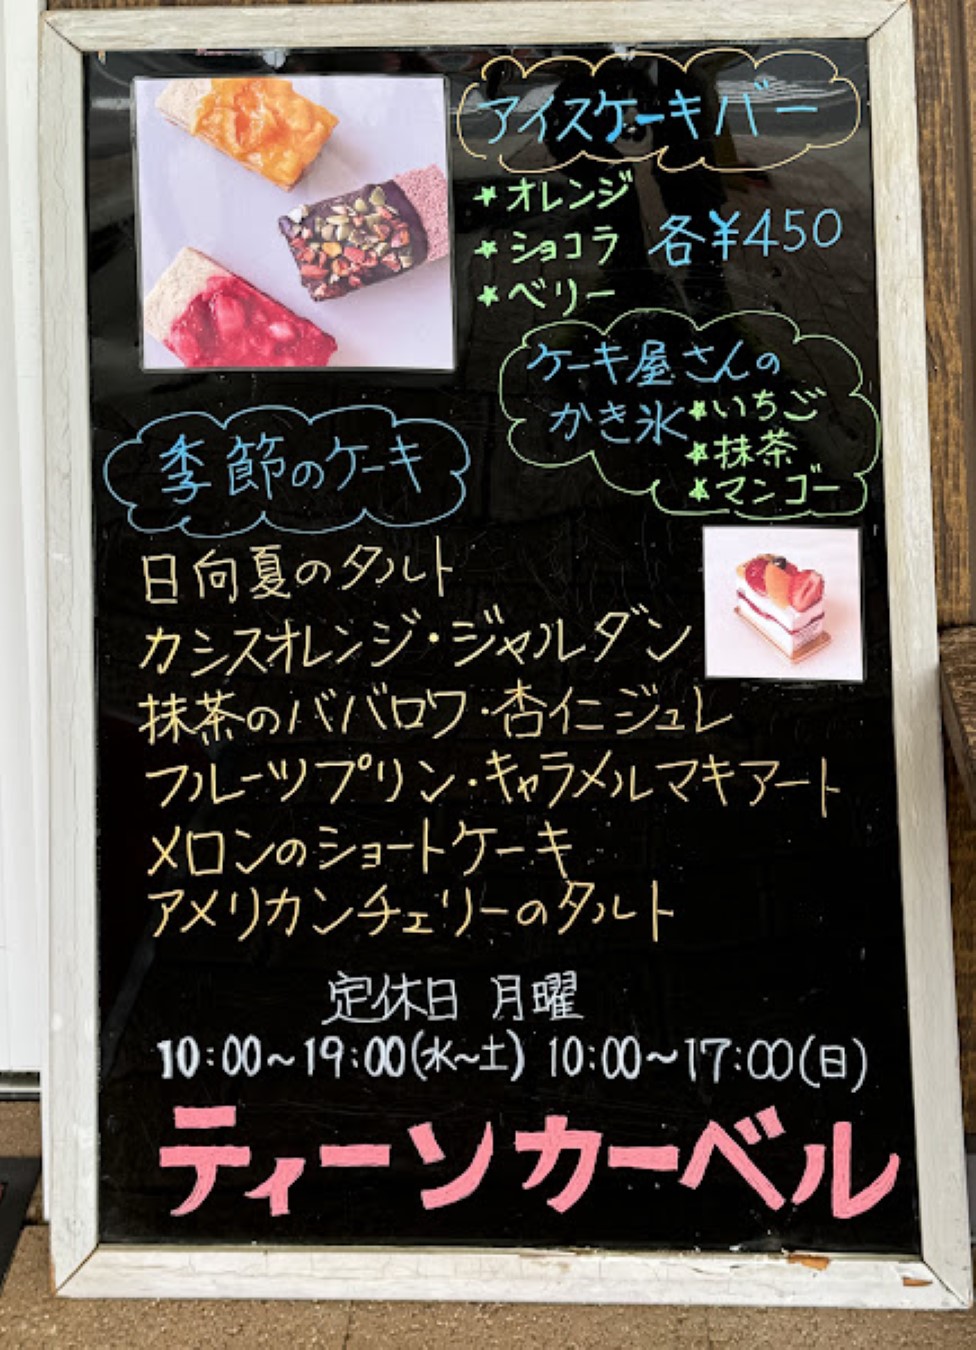 アイスケーキバー
★オレンジ
★ショコラ 各¥450
★ベリー
ケーキ屋さんの
かき氷★いちご
★抹茶
★マンゴー
季節のケーキ
日向夏のタルト
カシスオレンジ・ジャルダン
抹茶のババロワ・杏仁ジュレ
フルーツプリン・キャラメルマキアート
メロンのショートケーキ
アメリカンチェリーのタルト
定休日 月曜
10:00~19:00(水~土) 10:00~17:00(日)
ティーソカーベル